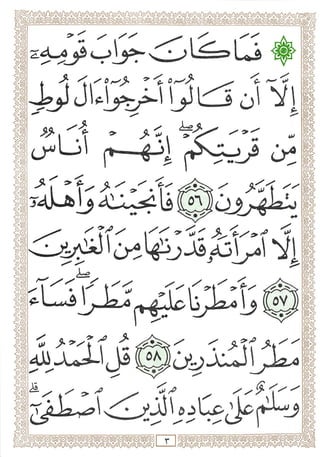 ۞ فَمَا كَانَ جَوَابَ قَوْمِهِۦٓ
إِلَّآ أَن قَالُوٓا۟ أَخْرِجُوٓا۟ ءَالَ لُوطٍ
مِّن قَرْيَتِكُمْ ۖ إِنَّهُمْ أُنَاسٌ
يَتَطَهَّرُونَ ٥٦ فَأَنجَيْنَـٰهُ وَأَهْلَهُۥٓ
إِلَّا ٱمْرَأَتَهُۥ قَدَّرْنَـٰهَا مِنَ ٱلْغَـٰبِرِينَ
٥٧ وَأَمْطَرْنَا عَلَيْهِم مَّطَرًا ۖ فَسَآءَ
مَطَرُ ٱلْمُنذَرِينَ ٥٨ قُلِ ٱلْحَمْدُ لِلَّهِ
وَسَلَـٰمٌ عَلَىٰ عِبَادِهِ ٱلَّذِينَ ٱصْطَفَىٰٓ ۗ
٣